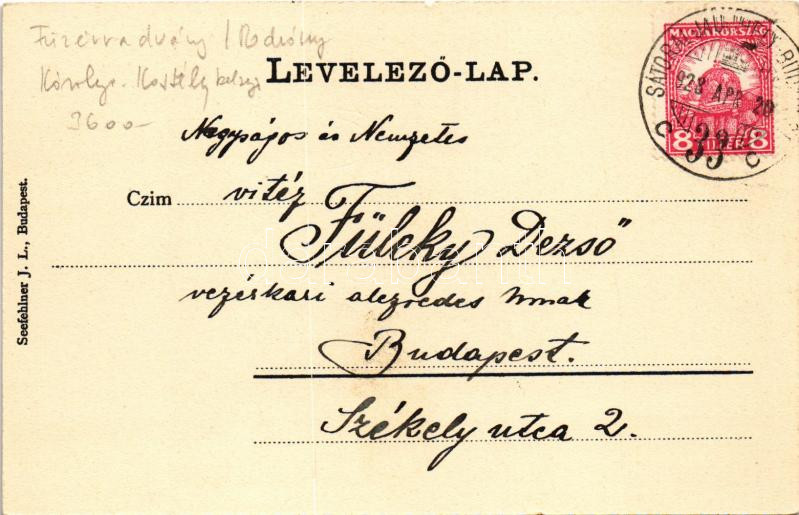 Füzérradvány / Radvány
Károlyi Kastély belseje
3600-
LEVELEZŐ-LAP.
MAGYARORSZÁG
928 APR 29
33
C C
8 FILLÉR 8
Nagyságos és Nemzetes
Czim vitéz
Fülcky Dezső
vezérkari alezredes Úrnak
Budapest.
Székely utca 2.
Seefehlner J. L., Budapest.